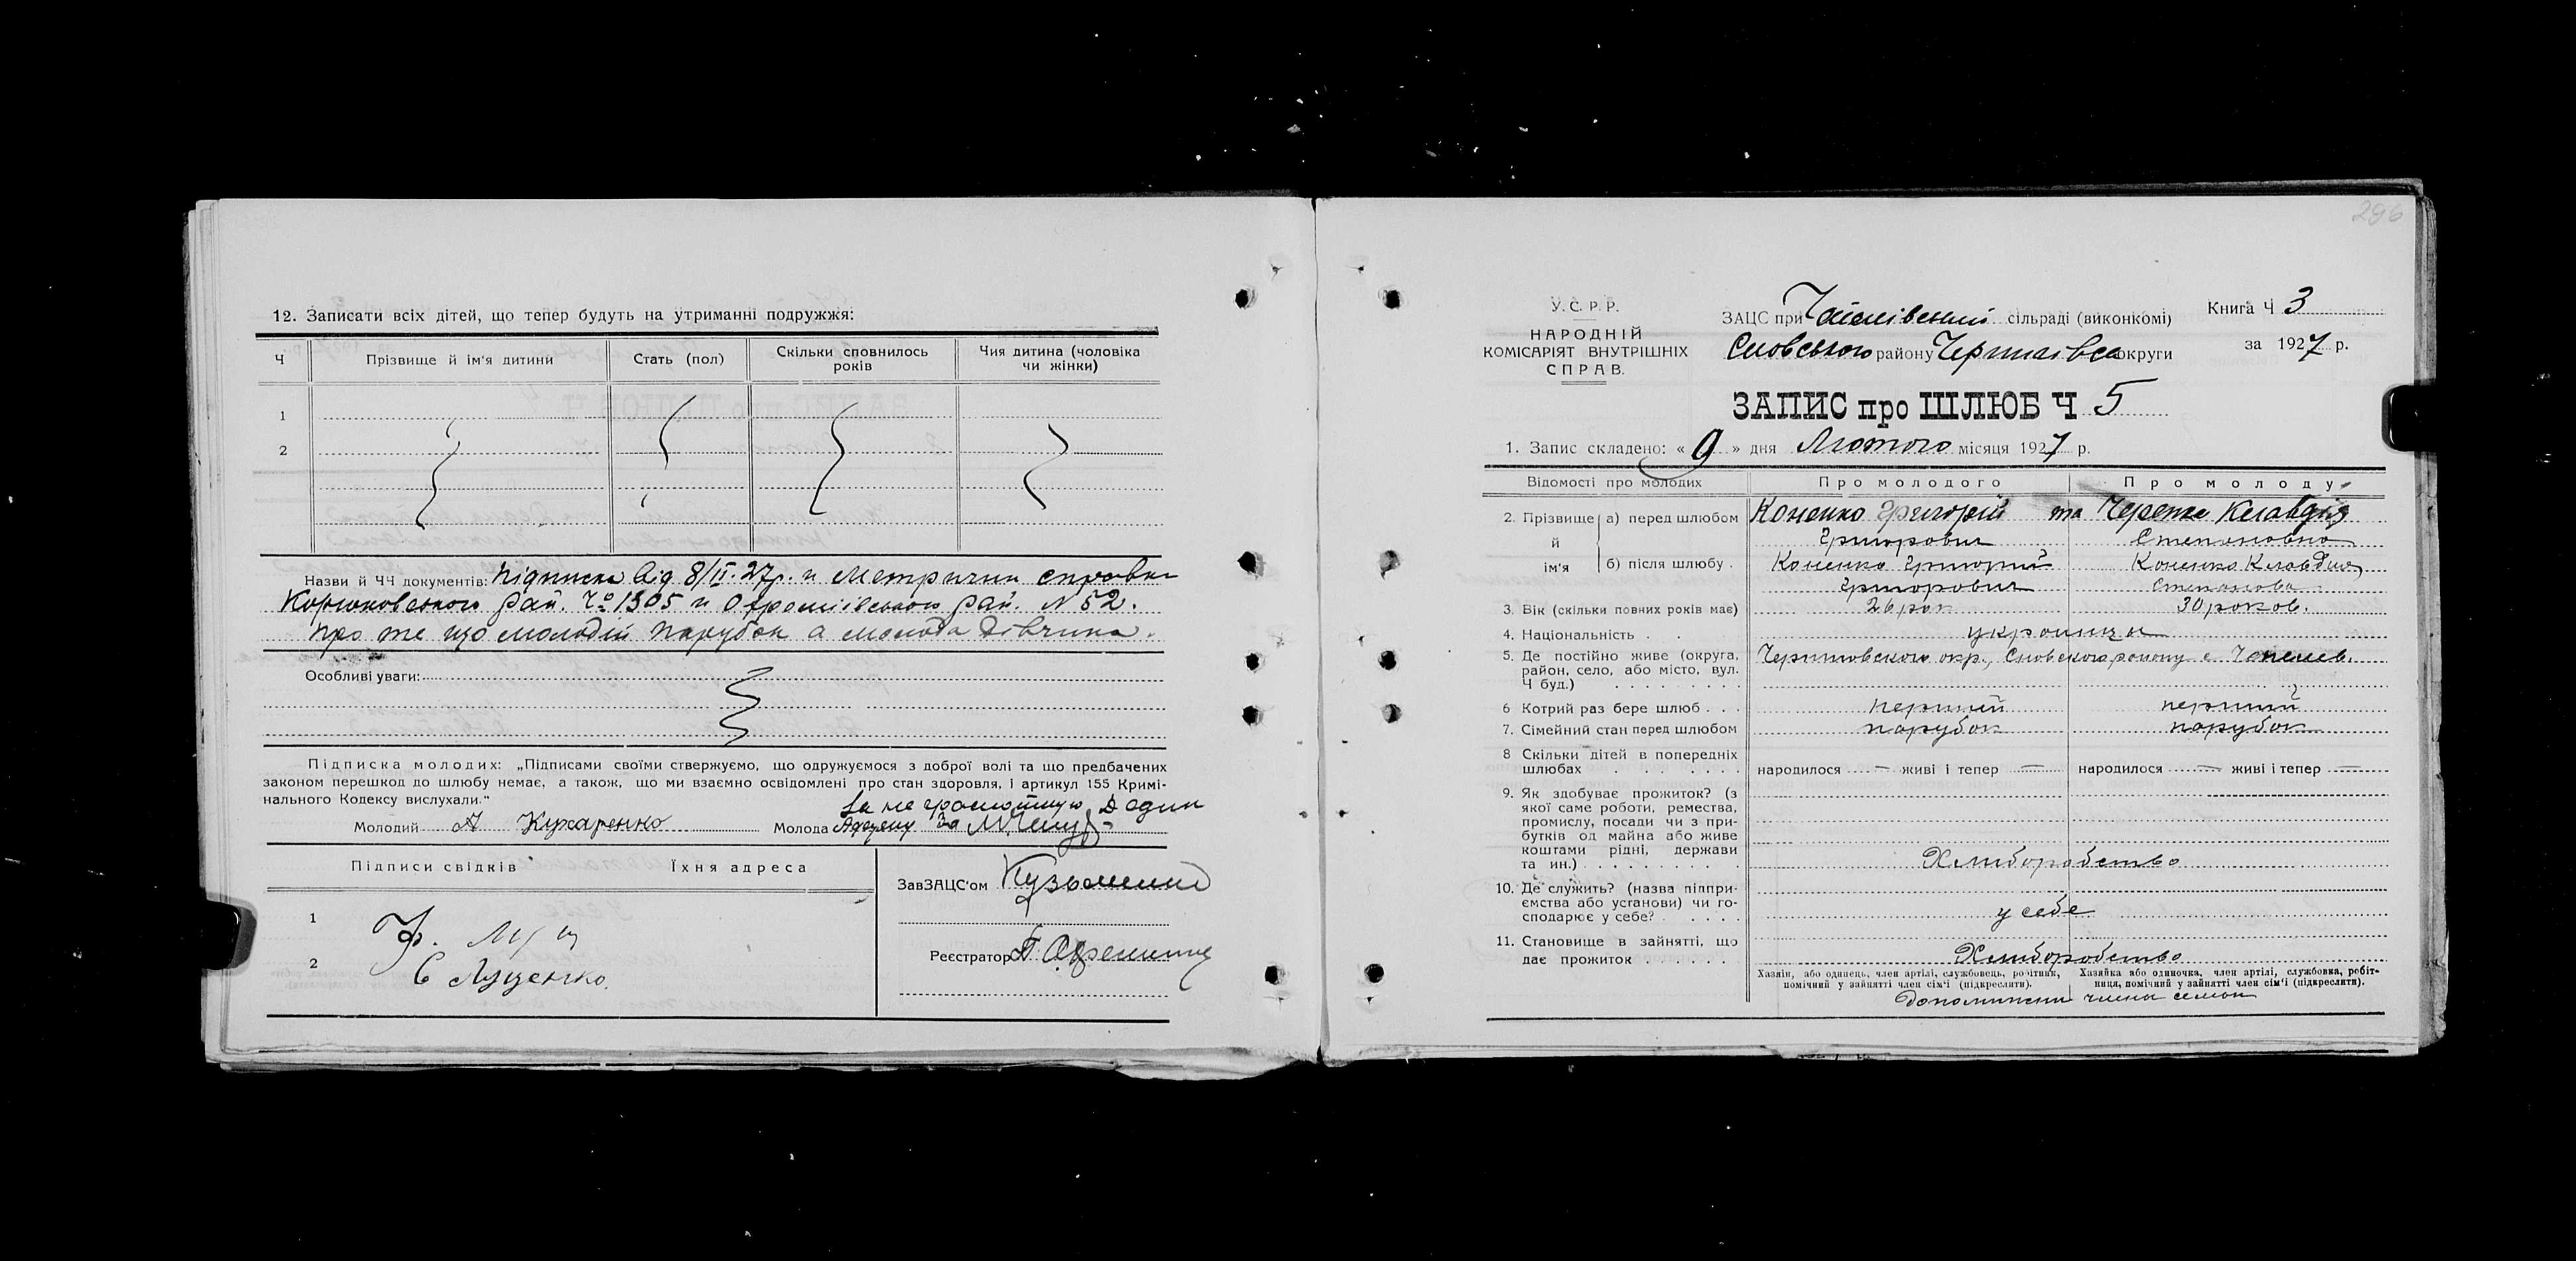 12. Записати всіх дітей, що тепер будуть на утриманні подружжя:
Ч Прізвище й ім'я дитини Стать (пол) Скільки сповнилось років Чия дитина (чоловіка чи жінки)
1
2
Назви й ЧЧ документів: Підписка від 8/II-27р. и Метричии справки
Корюковського рай. Ч° 1305 и рай. N 52.
про те що молодий парубок а молода дівчина.
Особливі уваги:
Підписка молодих: „Підписами своїми стверджуємо, що одружуємося з доброї волі та що предбачених
законом перешкод до шлюбу немає, а також, що ми взаємно освідомлені про стан здоров'я, і артикул 155 Кримі-
нального Кодексу вислухали."
За не грамотную
Молодий А Кухаренко Молода за
Підписи свідків Їхня адреса
ЗавЗАЦС'ом Кузьменко
1 Ф.
Реєстратор
2 Є Луценко.
296
У. С. Р. Р.
НАРОДНІЙ
КОМІСАРІЯТ ВНУТРІШНІХ
СПРАВ.
ЗАЦС при сільраді (виконкомі)
Сновського району округи
Книга Ч 3
за 1927 р.
ЗАПИС про ШЛЮБ Ч 5
1. Запис складено: « 9 » дня Лютого місяця 1927 р.
Відомості про молодих Про молодого Про молоду
2. Прізвище й ім'я а) перед шлюбом Коненко Григорій та Клавдія
Григорович Степановна
б) після шлюбу Коненко Григорий Коненко Клавдия
Григорович Степанова
3. Вік (скільки повних років має) 26 рок 30 роков.
4. Національність украинци
5. Де постійно живе (округа, Черниговского окр., Сновского району с
район, село, або місто, вул.
Ч буд.)
6 Котрий раз бере шлюб перший перший
7. Сімейний стан перед шлюбом парубок парубок
8 Скільки дітей в попередніх
шлюбах народилося — живі і тепер — народилося — живі і тепер —
9. Як здобуває прожиток? (з
якої саме роботи, ремества,
промислу, посади чи з при-
бутків од майна або живе
коштами рідні, держави
та ин.) Хлиборобство
10. Де служить? (назва підпри-
ємства або установи) чи го-
сподарює у себе? у себе
11. Становище в зайнятті, що
дає прожиток Хлиборобство
Хазяїн, або одинець, член артілі, службовець, робітник, Хазяйка або одиночка, член артілі, службовка, робіт-
помічний у зайнятті член сім'ї (підкреслити). ниця, помічний у зайнятті член сім'ї (підкреслити).
члени семьи